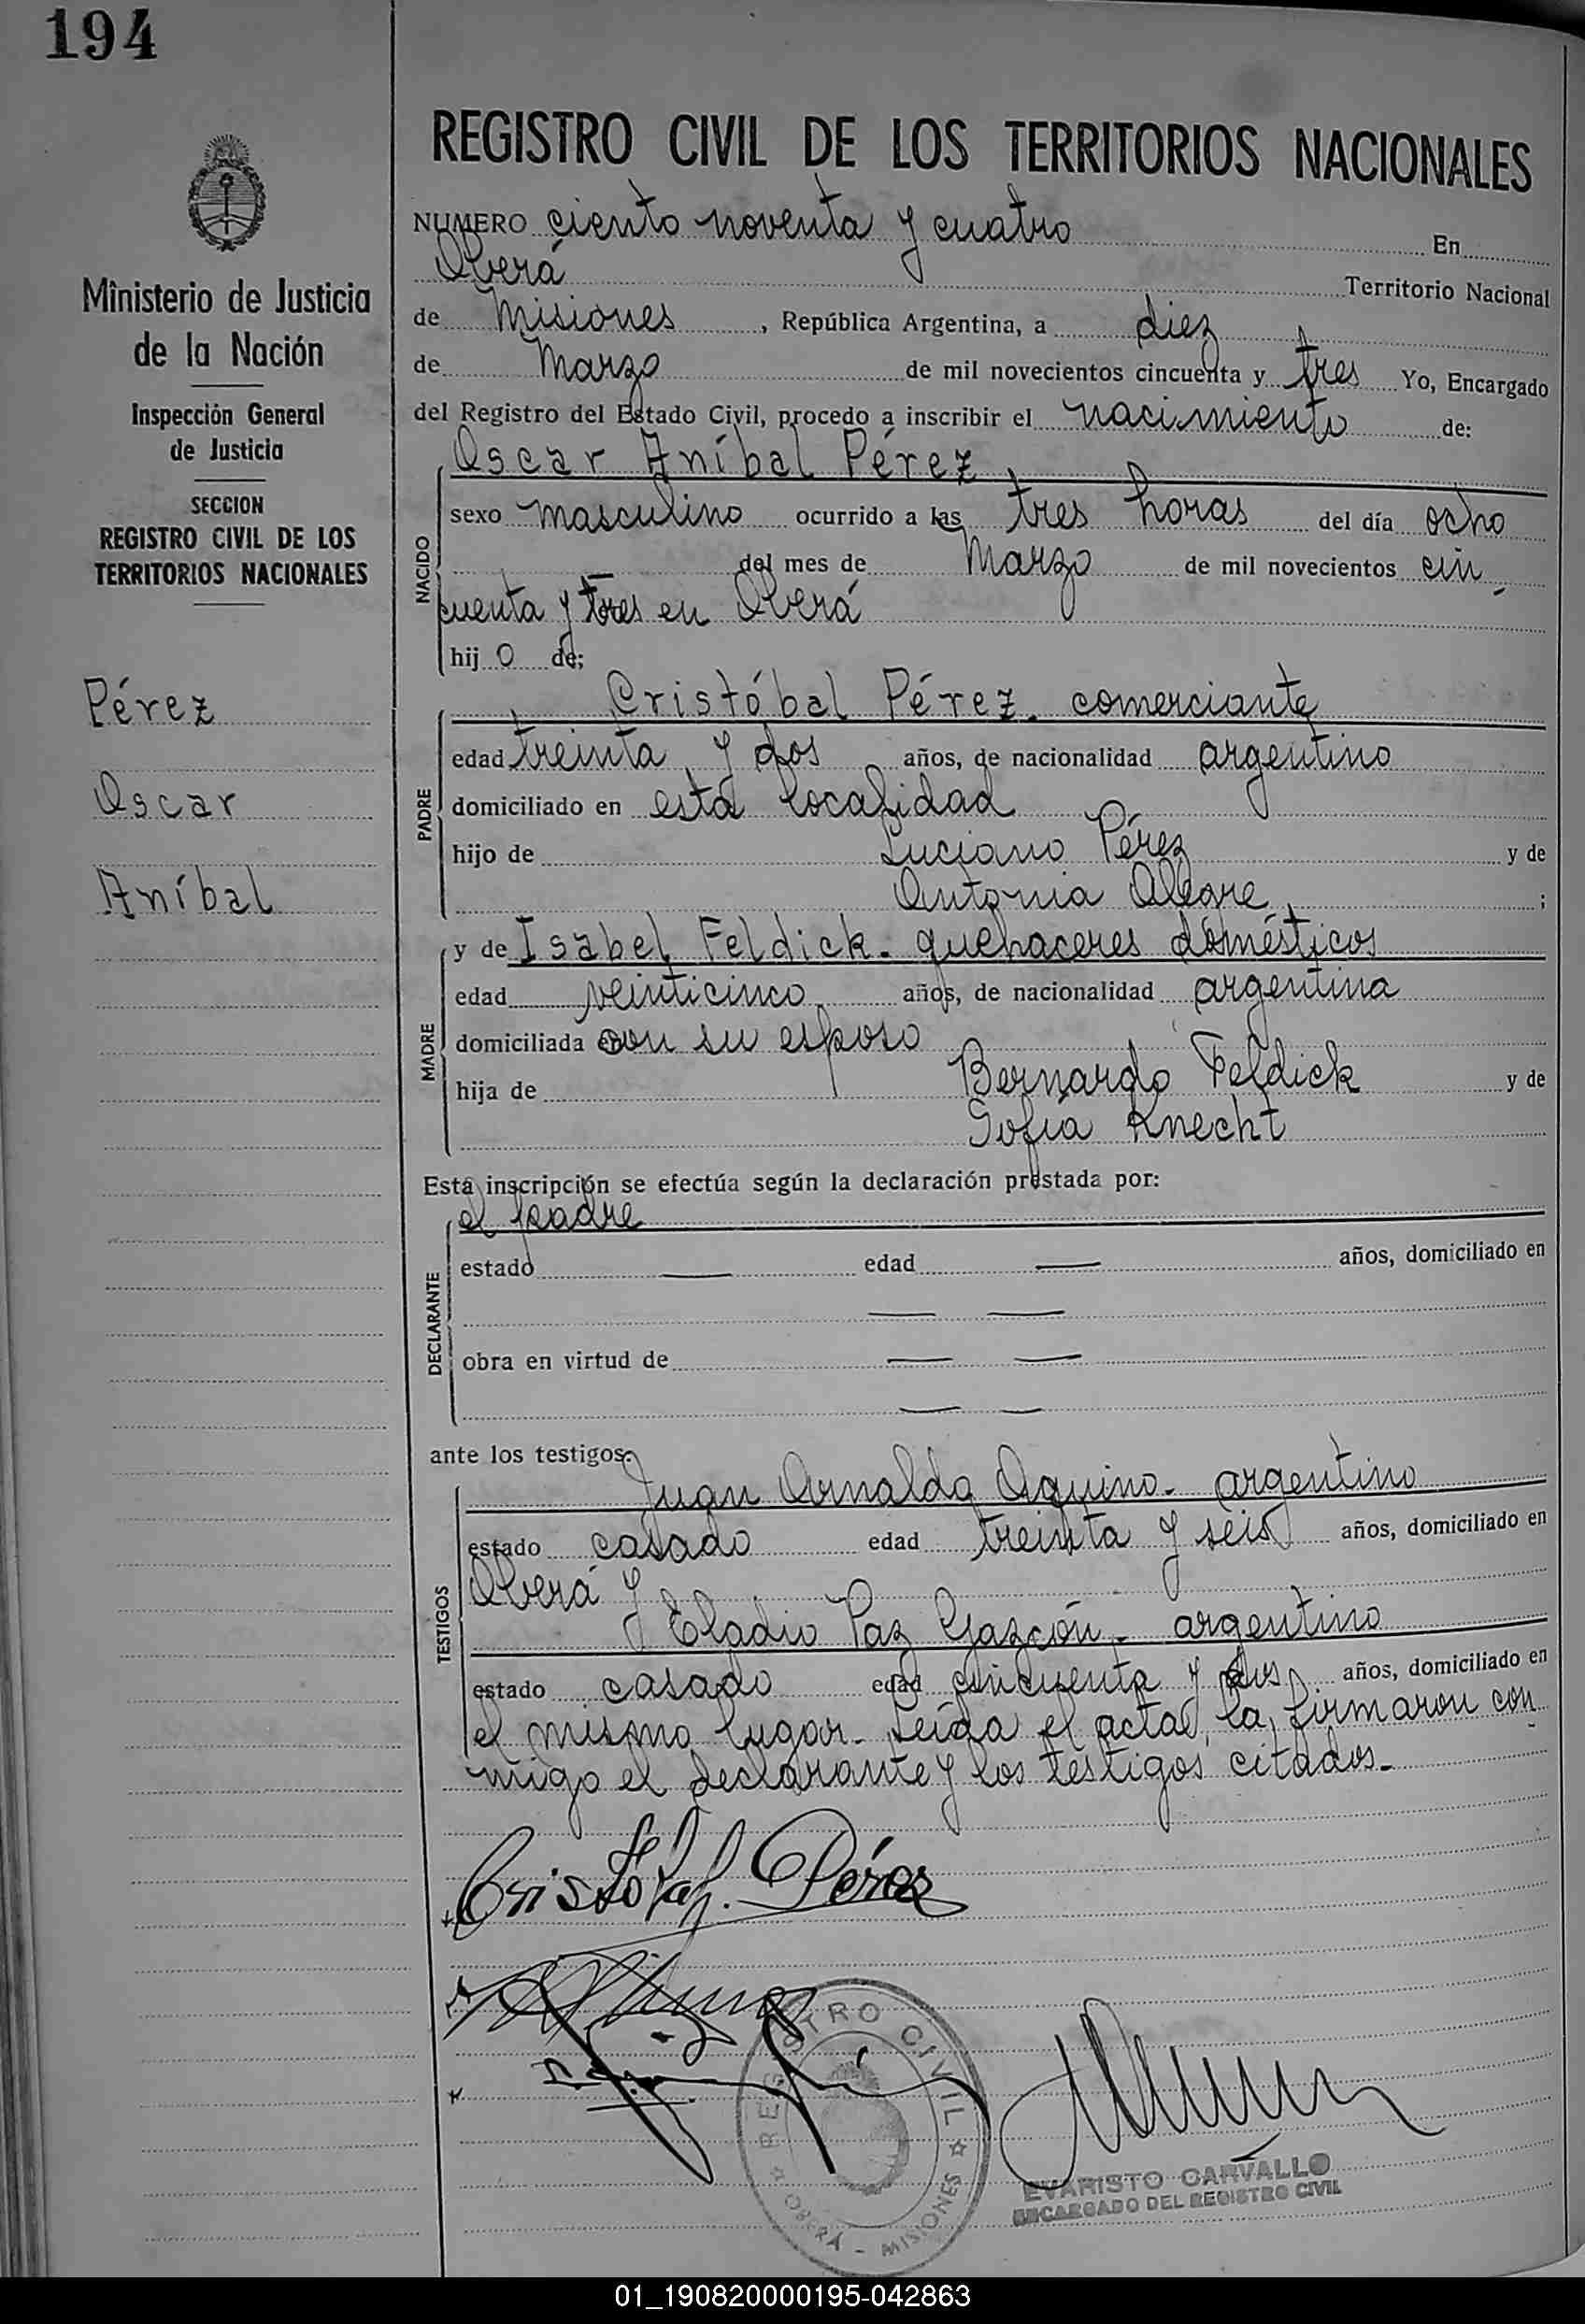 194
Ministerio de Justicia
de la Nación
Inspección General
de Justicia
SECCION
REGISTRO CIVIL DE LOS
TERRITORIOS NACIONALES
Pérez
Oscar
Aníbal
REGISTRO CIVIL DE LOS TERRITORIOS NACIONALES
NUMERO ciento noventa y cuatro En
Oberá Territorio Nacional
de Misiones, República Argentina, a diez
de Marzo de mil novecientos cincuenta y tres Yo, Encargado
del Registro del Estado Civil, procedo a inscribir el nacimiento de:
Oscar Aníbal Pérez,
NACIDO
sexo masculino ocurrido a las tres horas del día ocho
del mes de Marzo de mil novecientos cin-
cuenta y tres en Oberá
hijo de;
Cristóbal Pérez. comerciante
PADRE
edad treinta y dos años, de nacionalidad argentino
domiciliado en esta localidad
hijo de Luciano Pérez y de
Antonia Alegre ;
y de Isabel Feldick. quehaceres domésticos
MADRE
edad veinticinco años, de nacionalidad argentina
domiciliada con su esposo
hija de Bernardo Feldick y de
Sofía Knecht
Esta inscripción se efectúa según la declaración prestada por:
el padre
DECLARANTE
estado — edad — años, domiciliado en
— —
obra en virtud de — —
— —
ante los testigos:
Juan Arnaldo Aquino. argentino
TESTIGOS
estado casado edad treinta y seis años, domiciliado en
Oberá y
Eladio Paz Gazcón. argentino
estado casado edad cincuenta y dos años, domiciliado en
el mismo lugar. Leída el acta, la firmaron con-
migo el declarante y los testigos citados.
Cristóbal Pérez
REGISTRO CIVIL
OBERÁ - MISIONES
EVARISTO CARVALLO
ENCARGADO DEL REGISTRO CIVIL
01_190820000195-042863